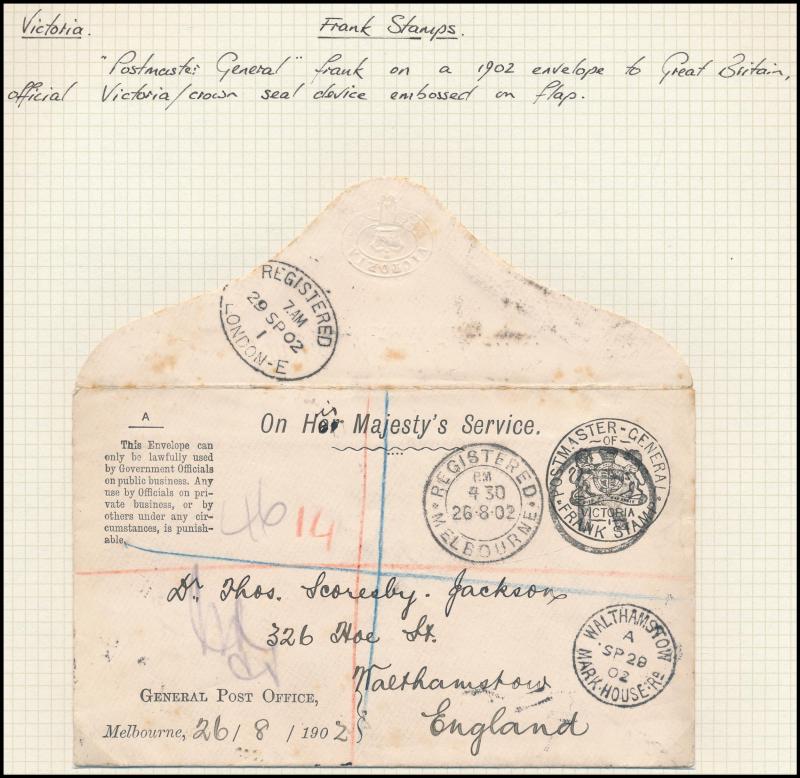 Victoria. Frank Stamps.
"Postmaster General" frank on a 1902 envelope to Great Britain,
official Victoria/crown seal device embossed on flap.
VICTORIA
REGISTERED
7 AM
29 SP 02
1
LONDON-E
A
On His Majesty's Service.
This Envelope can
only be lawfully used
by Government Officials
on public business. Any
use by Officials on pri-
vate business, or by
others under any cir-
cumstances, is punish-
able.
REGISTERED
PM
4 30
26·8·02
MELBOURNE
POSTMASTER-GENERAL
OF
VICTORIA
FRANK STAMP
14
Dr. Thos. Scoresby. Jackson
326 Hoe St.
Walthamstow
England
WALTHAMSTOW
A
SP 28
02
MARK-HOUSE-RD
GENERAL POST OFFICE,
Melbourne, 26/8/1902